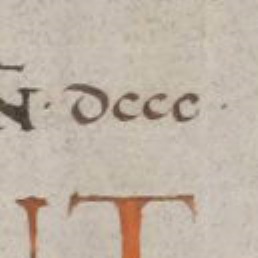 N · dccc ·
T